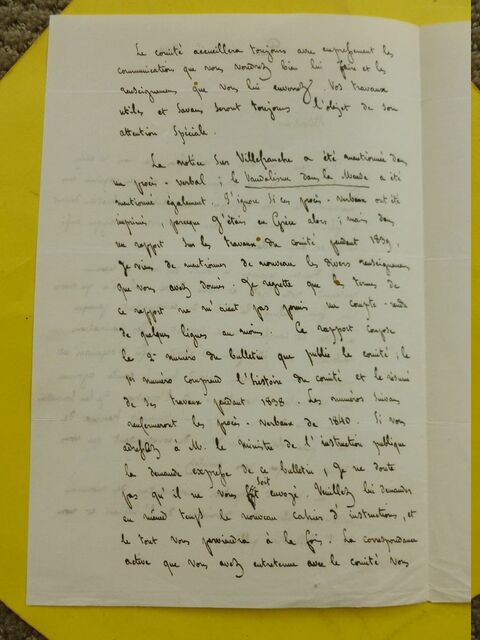 Le comité accueillera toujours avec empressement les
communication que vous voudrez bien lui faire et les
renseignemens que vous lui enverrez. Vos travaux
utiles et savans seront toujours l'objet de son
attention spéciale.
La notice sur Villefranche a été mentionnée dans
un procès-verbal ; le Vandalisme dans la a été
mentionné également. J'ignore si ces procès-verbaux ont été
imprimés, parceque j'étais en Grèce alors ; mais dans
un rapport sur les travaux du comité pendant 1839,
je viens de mentionner de nouveau les divers renseignemens
que vous avez donnés ; je regrette que le termes de
ce rapport ne m'aient pas permis un compte-rendu
de quelques lignes au moins. Ce rapport compose
le 2e numéro du bulletin que publie le comité ; le
1er numéro comprend l'histoire du comité et le résumé
de ses travaux pendant 1838. Les numéros suivans
renfermeront les procès-verbaux de 1840. Si vous
adressez à M. le ministre de l'instruction publique
la demande expresse de ce bulletin, je ne doute
pas qu'il ne vous soit envoyé. Veuillez lui demander
en même temps le nouveau cahier d'instructions, et
le tout vous parviendra à la fois. La correspondance
active que vous avez entretenue avec le comité vous